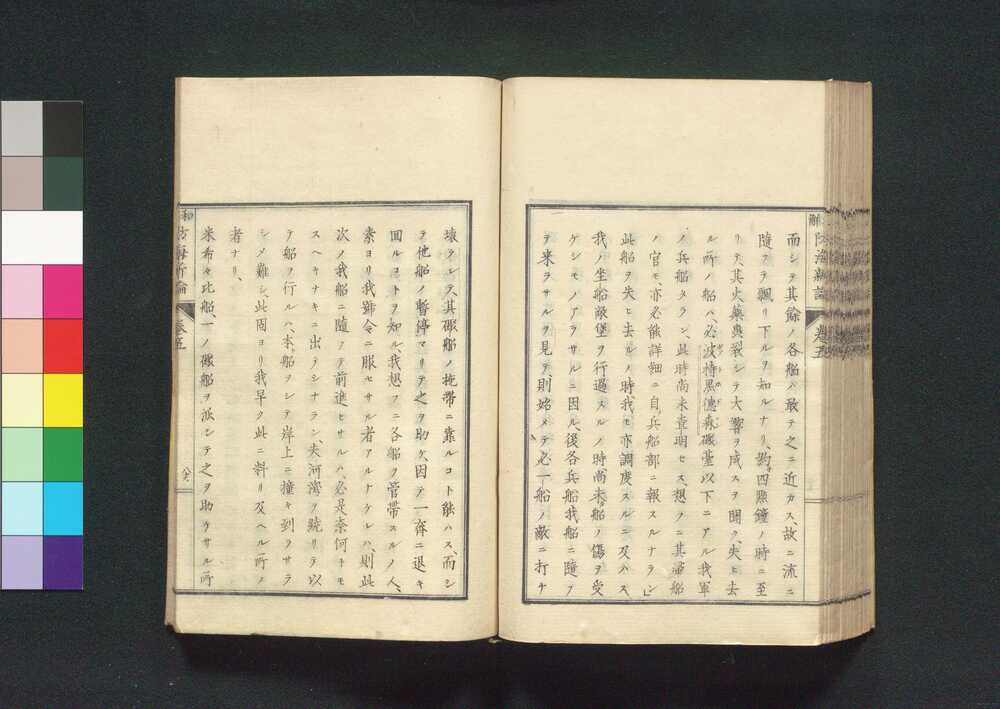 而シテ其餘ノ各船ハ敢テ之ニ近カス、故ニ流ニ
隨フテ飄リ下ルヲ知ルナリ、約四㸃鐘ノ時ニ至
リテ、其火藥轟裂シテ大響ヲ成スヲ聞ク、失ヒ去
ル所ノ船ハ、必波特黑德森礮臺以下ニアル我軍
ノ兵船タラン、此時尚未査明セス、想フニ其船
ノ官モ、亦必能詳細ニ自兵船部ニ報スルナラン」
此船ヲ失ヒ去ルノ時、我モ亦調度スルニ及ハス、
我ノ坐船敵堡ヲ行過スルノ時尚未船ノ傷ヲ受
ケシモノアラサルニ因ル、後各兵船我船ニ隨フ
テ来ラサルヲ見テ、則始メテ必一船ノ敵ニ打チ
解防海新論 卷五
壊ラレテ、其礮船ノ拖帶ニ靠ルコト能ハス、而シ
テ他船ノ暫停マリテ之ヲ助ケ、因テ一齊ニ退キ
回ルコトヲ知ル、我想フニ各船ヲ管帶スルノ人、
素ヨリ我號令ニ服セサル者アルナケレハ、則此
次ノ我船ニ隨フテ前進セサルハ、必是奈何トモ
スヘキナキニ出ラシナラン、夫河灣ヲ繞リテ以
テ船ヲ行ルハ、本船ヲシテ岸上ニ撞キ到ラサラ
シメ難シ、此固ヨリ我早ク此ニ料リ及ヘル所ノ
者ナリ、
米希々比船、一ノ礮船ヲ派シテ之ヲ助ケサル所
和 防海新論 卷五